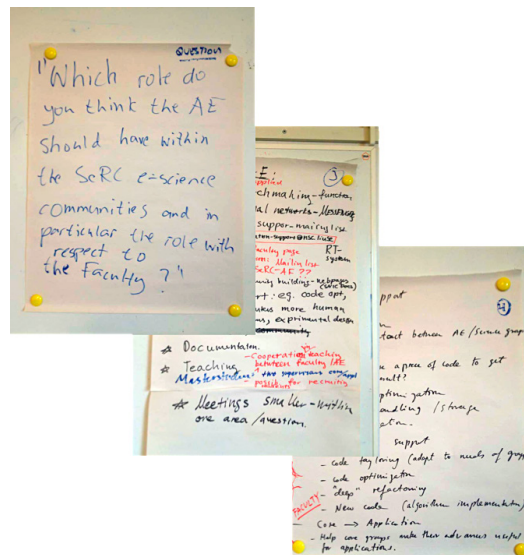 QUESTION
"Which role do
you think the AE
should have within
the SeRC e-science
communities and in
particular the role with
respect to
the Faculty?"
3
E:
chmaking-function
al networks-
support-mailing list
RT-
system
faculty page
Mailing list
SeRC-AE??
building-webpages
rt: e.g. code opt,
more human
experimental design
community
☆ Documentation
☆ Teaching
-Cooperation teaching
between faculty/AE
two supervisors
for recruiting
☆ Meetings smaller-within
one area/question.
4
pport
tact between AE/
a piece of code to get
ult?
ptimization
andling/storage
ation.
support
- code tayloring (adopt to needs of group
- code optimization
- "deep" refactoring
FACULTY
- New code (algorithm implementation)
- Core → Application
- Help core groups make their advances useful
for applications.